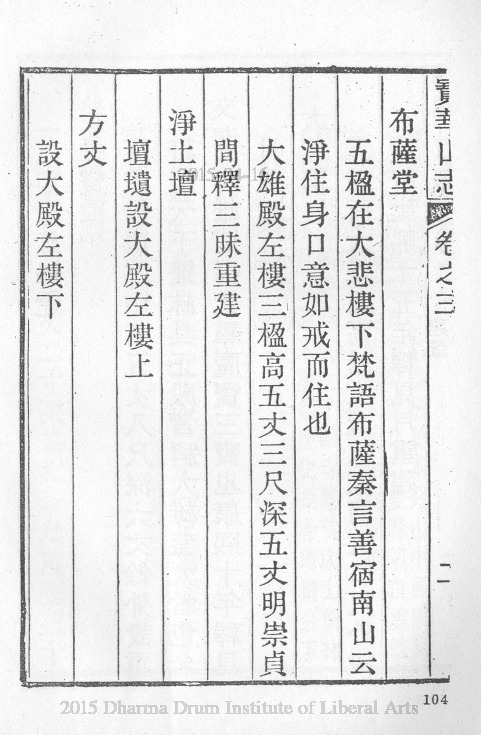 寶華山志
卷之三
二
布薩堂
五楹在大悲樓下梵語布薩秦言善宿南山云
淨住身口意如戒而住也
大雄殿左樓三楹高五丈三尺深五丈明崇貞
間釋三昧重建
淨土壇
壇墳設大殿左樓上
方丈
設大殿左樓下
104
2015 Dharma Drum Institute of Liberal Arts